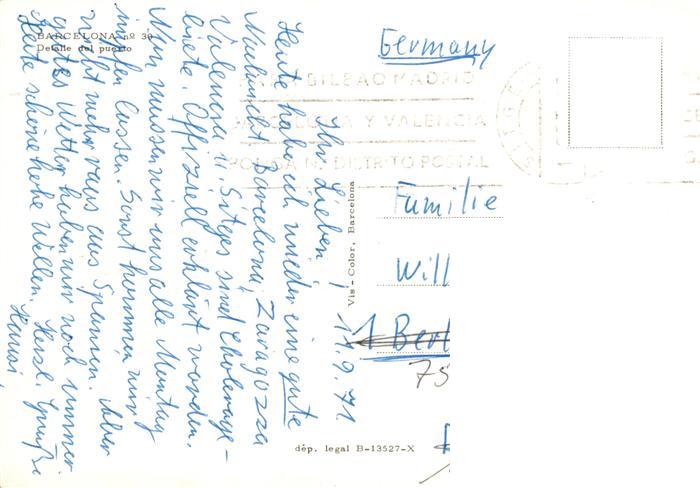 BARCELONA nº 30
Detalle del puerto
Ihr Lieben! 17.9.71
Heute habe ich wieder eine gute
Nachricht. Barcelona, Zaragozza
Valencia u. Sitges sind Cholerage-
biete. Offiziell erklärt worden.
Nun müssen wir uns alle Montag
impfen lassen. Sonst kommen wir
nicht mehr raus aus Spanien. Aber
gutes Wetter haben wir noch immer
Heute schöne hohe Wellen. Herzl. Grüße
Hansi,
Vis-Color, Barcelona
dép. legal B-13527-X
Germany
BILBAO MADRID
Y VALENCIA
DISTRITO POSTAL
Familie
Will
1 Berl
75